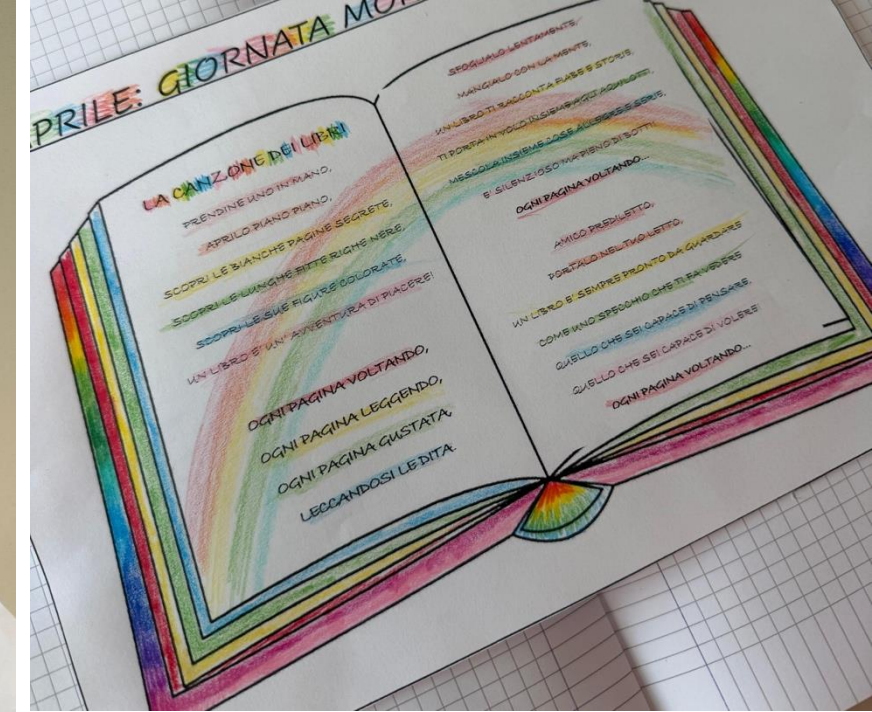 PRILE: GIORNATA MO
LA CANZONE DEI LIBRI
PRENDINE UNO IN MANO,
APRILO PIANO PIANO,
SCOPRI LE BIANCHE PAGINE SEGRETE,
SCOPRI LE LUNGHE FITTE RIGHE NERE,
SCOPRI LE SUE FIGURE COLORATE,
UN LIBRO E' UN' AVVENTURA DI PIACERE!
OGNI PAGINA VOLTANDO,
OGNI PAGINA LEGGENDO,
OGNI PAGINA GUSTATA,
LECCANDOSI LE DITA.
SFOGLIALO LENTAMENTE,
MANGIALO CON LA MENTE,
UN LIBRO TI RACCONTA FIABE E STORIE,
TI PORTA IN VOLO INSIEME AGLI AQUILOTTI,
MESCOLA INSIEME COSE ALLEGRE E SERIE,
E' SILENZIOSO MA PIENO DI BOTTI
OGNI PAGINA VOLTANDO...
AMICO PREDILETTO,
PORTALO NEL TUO LETTO,
UN LIBRO E' SEMPRE PRONTO DA GUARDARE
COME UNO SPECCHIO CHE TI FA VEDERE
QUELLO CHE SEI CAPACE DI PENSARE,
QUELLO CHE SEI CAPACE DI VOLERE
OGNI PAGINA VOLTANDO...